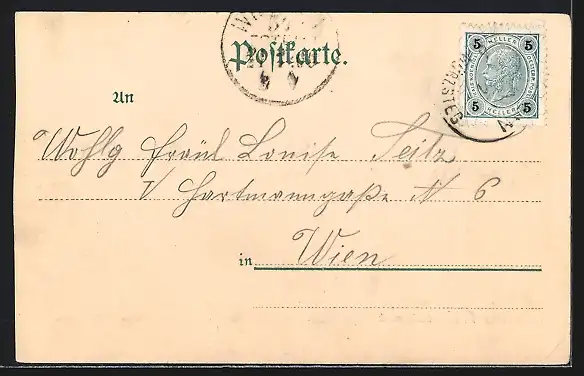 WIEN
Postkarte.
5 5
HELLER HELLER
5 5
An
Wohlg Fräul Louise Seitz
V Hartmanngaße N 6
in Wien